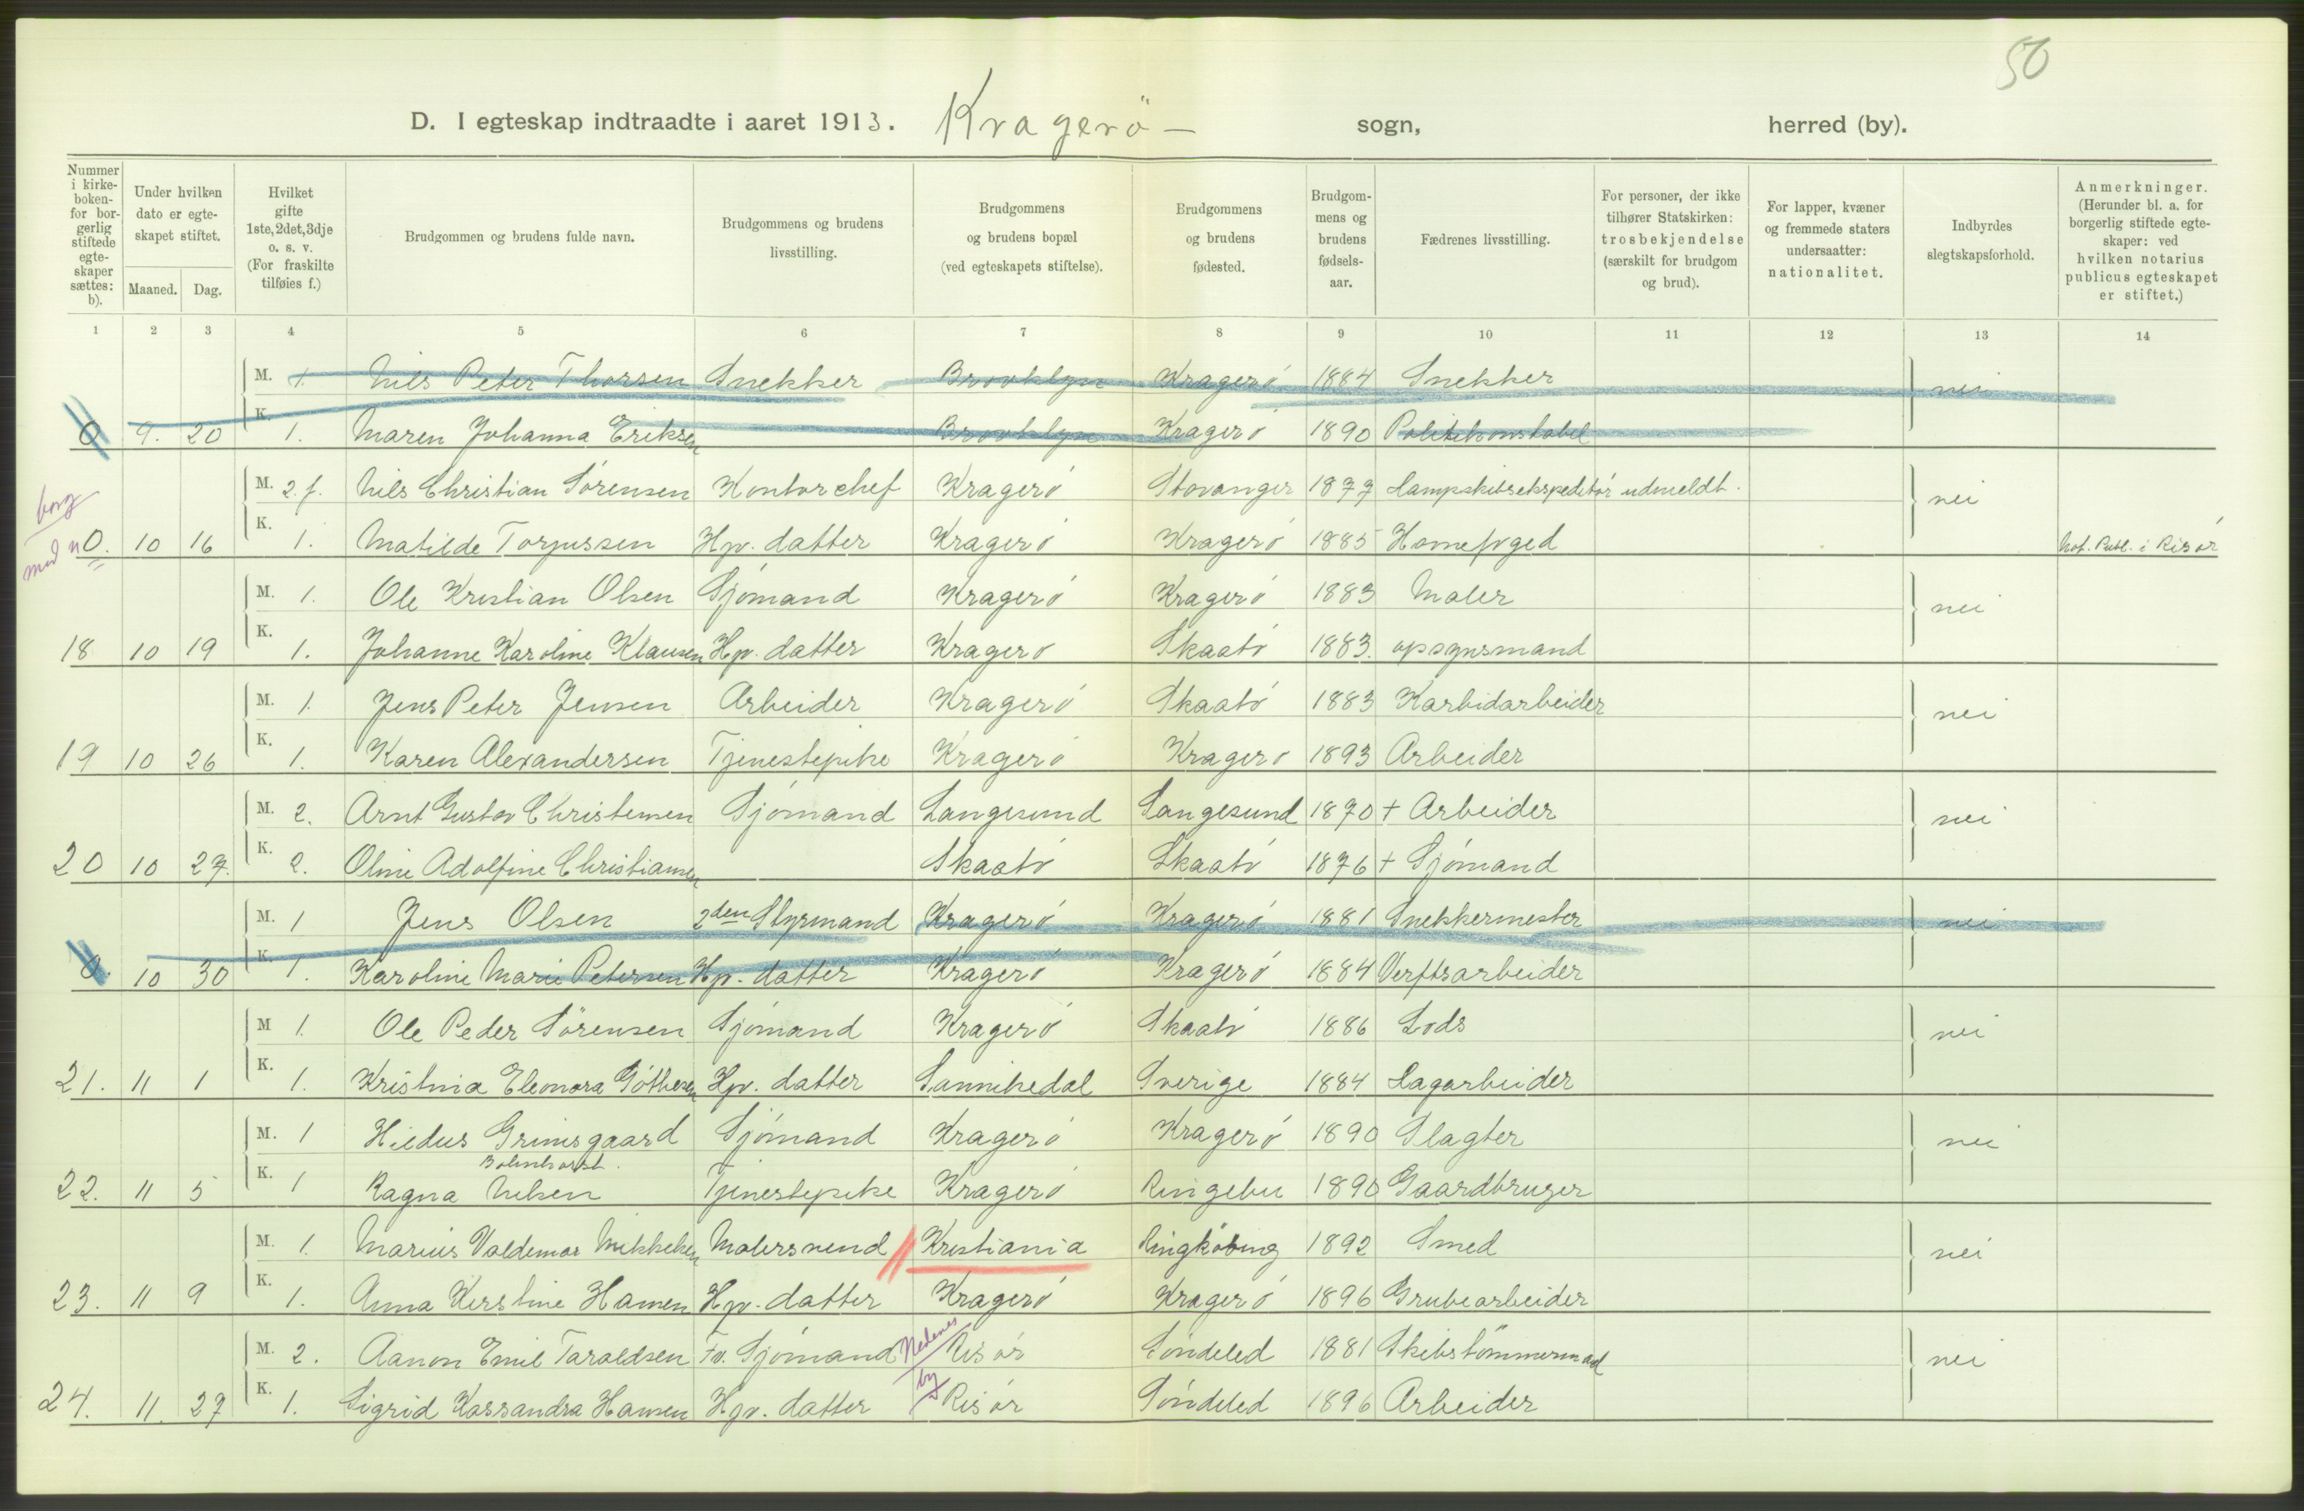 50
D. I egteskap indtraadte i aaret 1913. Kragerö — sogn, herred (by).
Nummer i kirke-boken- for bor-gerlig stiftede egte-skaper sættes: b). Under hvilken dato er egte-skapet stiftet. Maaned. Dag. Hvilket gifte 1ste, 2det, 3dje o. s. v. (For fraskilte tilføies f.) Brudgommen og brudens fulde navn. Brudgommens og brudens livsstilling. Brudgommens og brudens bopæl (ved egteskapets stiftelse). Brudgommens og brudens fødested. Brudgom-mens og brudens fødsels-aar. Fædrenes livsstilling. For personer, der ikke tilhører Statskirken: trosbekjendelse (særskilt for brudgom og brud). For lapper, kvæner og fremmede staters undersaatter: nationalitet. Indbyrdes slegtskapsforhold. Anmerkninger. (Herunder bl. a. for borgerlig stiftede egte-skaper: ved hvilken notarius publicus egteskapet er stiftet.)
1 2 3 4 5 6 7 8 9 10 11 12 13 14
M. 1. Nils Peter Thorsen Snekker Brooklyn Kragerø 1884 Snekker nei
0 9. 20 K. 1. Maren Johanna Eriksen Brooklyn Kragerø 1890 Politikonstabel
M. 2. f. Nils Christian Sørensen Kontorchef Kragerø Stavanger 1877 Dampskibsekspeditør udmeldt. nei
borg
0. 10 16 K. 1. Matilde Torjussen Hjv. datter Kragerø Kragerø 1885 Havnefoged Not. Publ. i Risør
M. 1. Ole Kristian Olsen Sjømand Kragerø Kragerø 1883 Maler nei
18 10 19 K. 1. Johanne Karoline Klausen Hjv. datter Kragerø Skaatø 1883. opsynsmand
M. 1. Jens Peter Jensen Arbeider Kragerø Skaatø 1883 Karbidarbeider nei
19 10 26 K. 1. Karen Alexandersen Tjenestepike Kragerø Kragerø 1893 Arbeider
M. 2. Arnt Gustav Christensen Sjømand Langesund Langesund 1870 + Arbeider nei
20 10 27. K. 2. Oline Adolfine Christiansen Skaatø Skaatø 1876 + Sjømand
M. 1 Jens Olsen 2den Styrmand Kragerø Kragerø 1881 Snekkermester nei
0. 10 30 K. 1. Karoline Marie Petersen Hjv. datter Kragerø Kragerø 1884 Verftsarbeider
M 1. Ole Peder Sørensen Sjømand Kragerø Skaatø 1886 Lods nei
21. 11 1 K. 1. Kristina Eleonora Gøthesen Hjv. datter Sannikedal Sverige 1884 Dagarbeider
M. 1 Grimsgaard Sjømand Kragerø Kragerø 1890 Slagter nei
Bolmhorst.
22. 11 5 K. 1 Ragna Nilsen Tjenestepike Kragerø Ringebu 1890 Gaardbruger
M. 1. Marius Valdemar Mikkelsen Malersvend Kristiania Ringkøbing 1892 Smed nei
23. 11 9 K. 1. Anna Kirstine Hansen Hjv. datter Kragerø Kragerø 1896 Grubearbeider
M. 2. Aanon Emil Taraldsen Fv. Sjømand Nedenes Risør Søndeled 1881 Skibstømmermand nei
24. 11. 27 K. 1. Sigrid Kassandra Hansen Hjv. datter by Risør Søndeled 1896 Arbeider